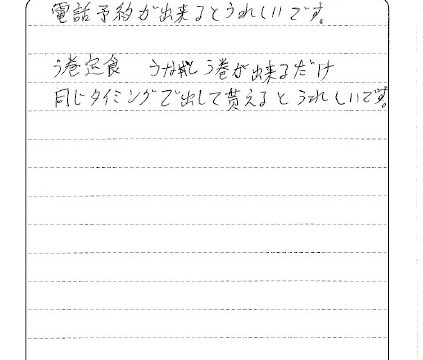 電話予約が出来るとうれしいです。
う巻定食 うな重 う巻が出来るだけ
同じタイミングで出して貰えると うれしいです。